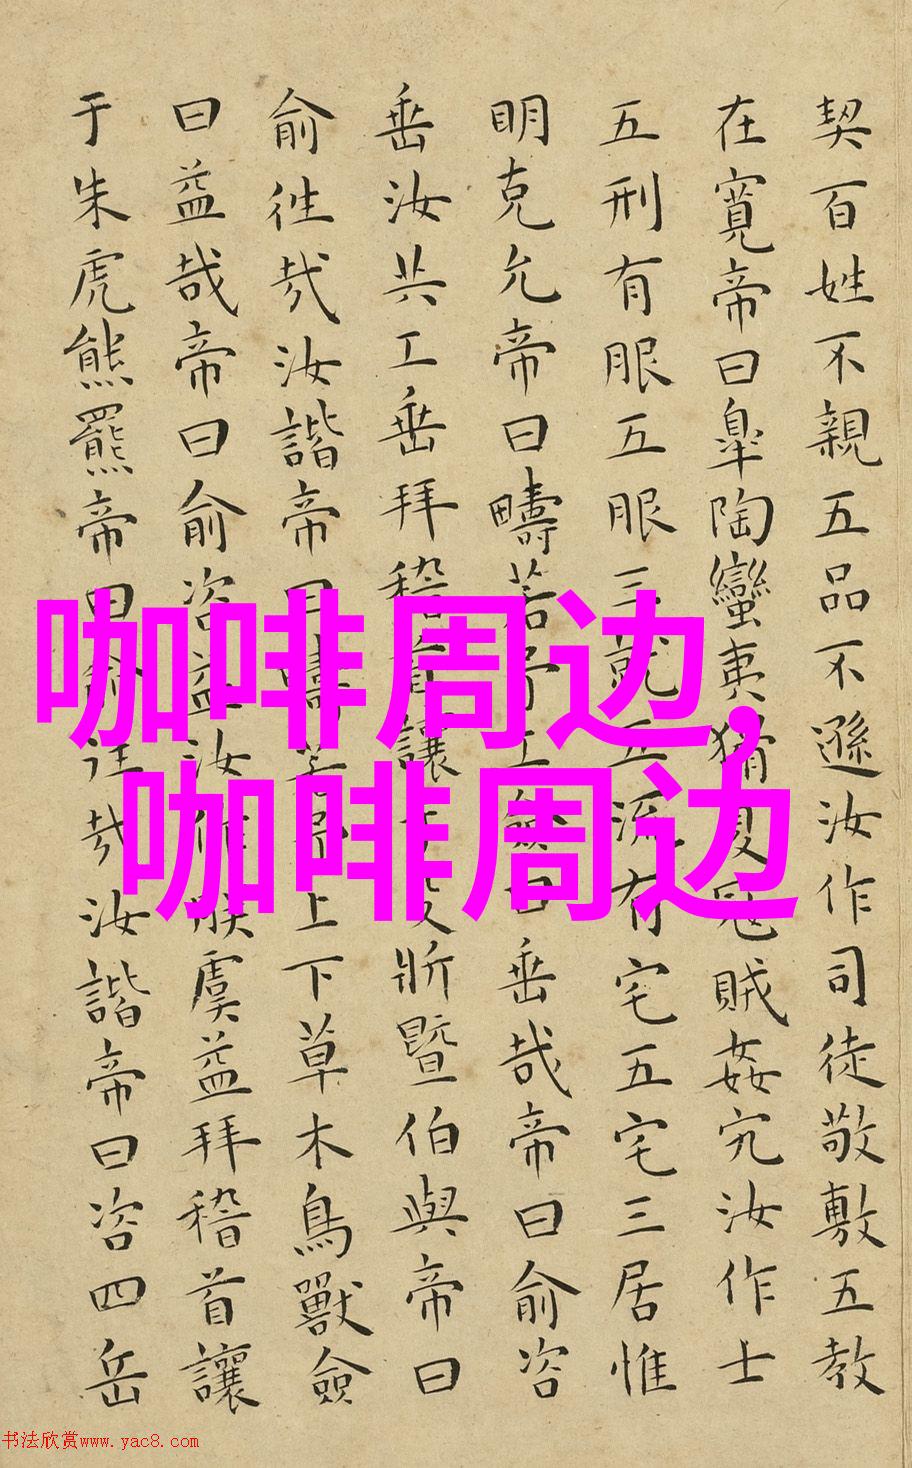 契百姓不親五品不遜汝作司徒敬敷五教
在寬帝曰皐陶蠻夷猾夏寇賊姦宄汝作士
五刑有服五服三就五流有宅五宅三居惟
明克允帝曰疇若予工僉曰垂哉帝曰俞咨
垂汝共工垂拜稽首讓于殳斨暨伯與帝曰
俞徃哉汝諧帝曰疇若予上下草木鳥獸僉
曰益哉帝曰俞咨益汝作朕虞益拜稽首讓
于朱虎熊羆帝曰俞往哉汝諧帝曰咨四岳
咖啡周边,
咖啡周边
书法欣赏www.yac8.com